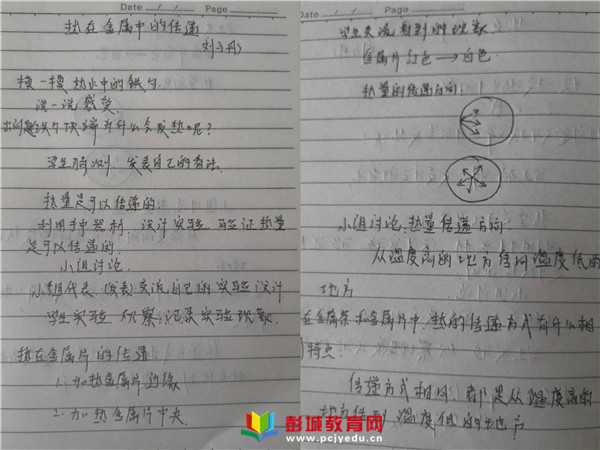 Date / / Page
热在金属中的传递
摸一摸 热水中的铁勺.
说一说 感受.
出问题铁勺顶端为什么会发热呢?
学生猜测 发表自己的看法.
热量是可以传递的.
利用手中器材, 设计实验 验证热量
是可以传递的.
小组讨论.
小组代表 交流自己的实验设计
学生实验 观察、记录实验现象.
热在金属片的传递
1. 加热金属片边缘
2. 加热金属片中央.
Date / / Page
学生交流看到的现象
金属片红色 → 白色.
热量的传递方向:
小组讨论: 热量传递方向.
从温度高的地方传向温度低的
地方
在金属条和金属片中, 热的传递方式有什么相
同特点:
传递方式相同, 都是从温度高的
地方传到温度低的地方
彭城教育网
www.pcjyedu.cn